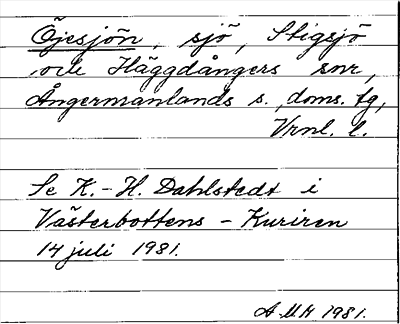 Öjesjön, sjö, Stigsjö
och Häggdångers snr,
Ångermanlands s. doms. tg,
Vrnl. l.
Se K.-H. Dahlstedt i
Västerbottens-Kuriren
14 juli 1981.
AMH 1981.